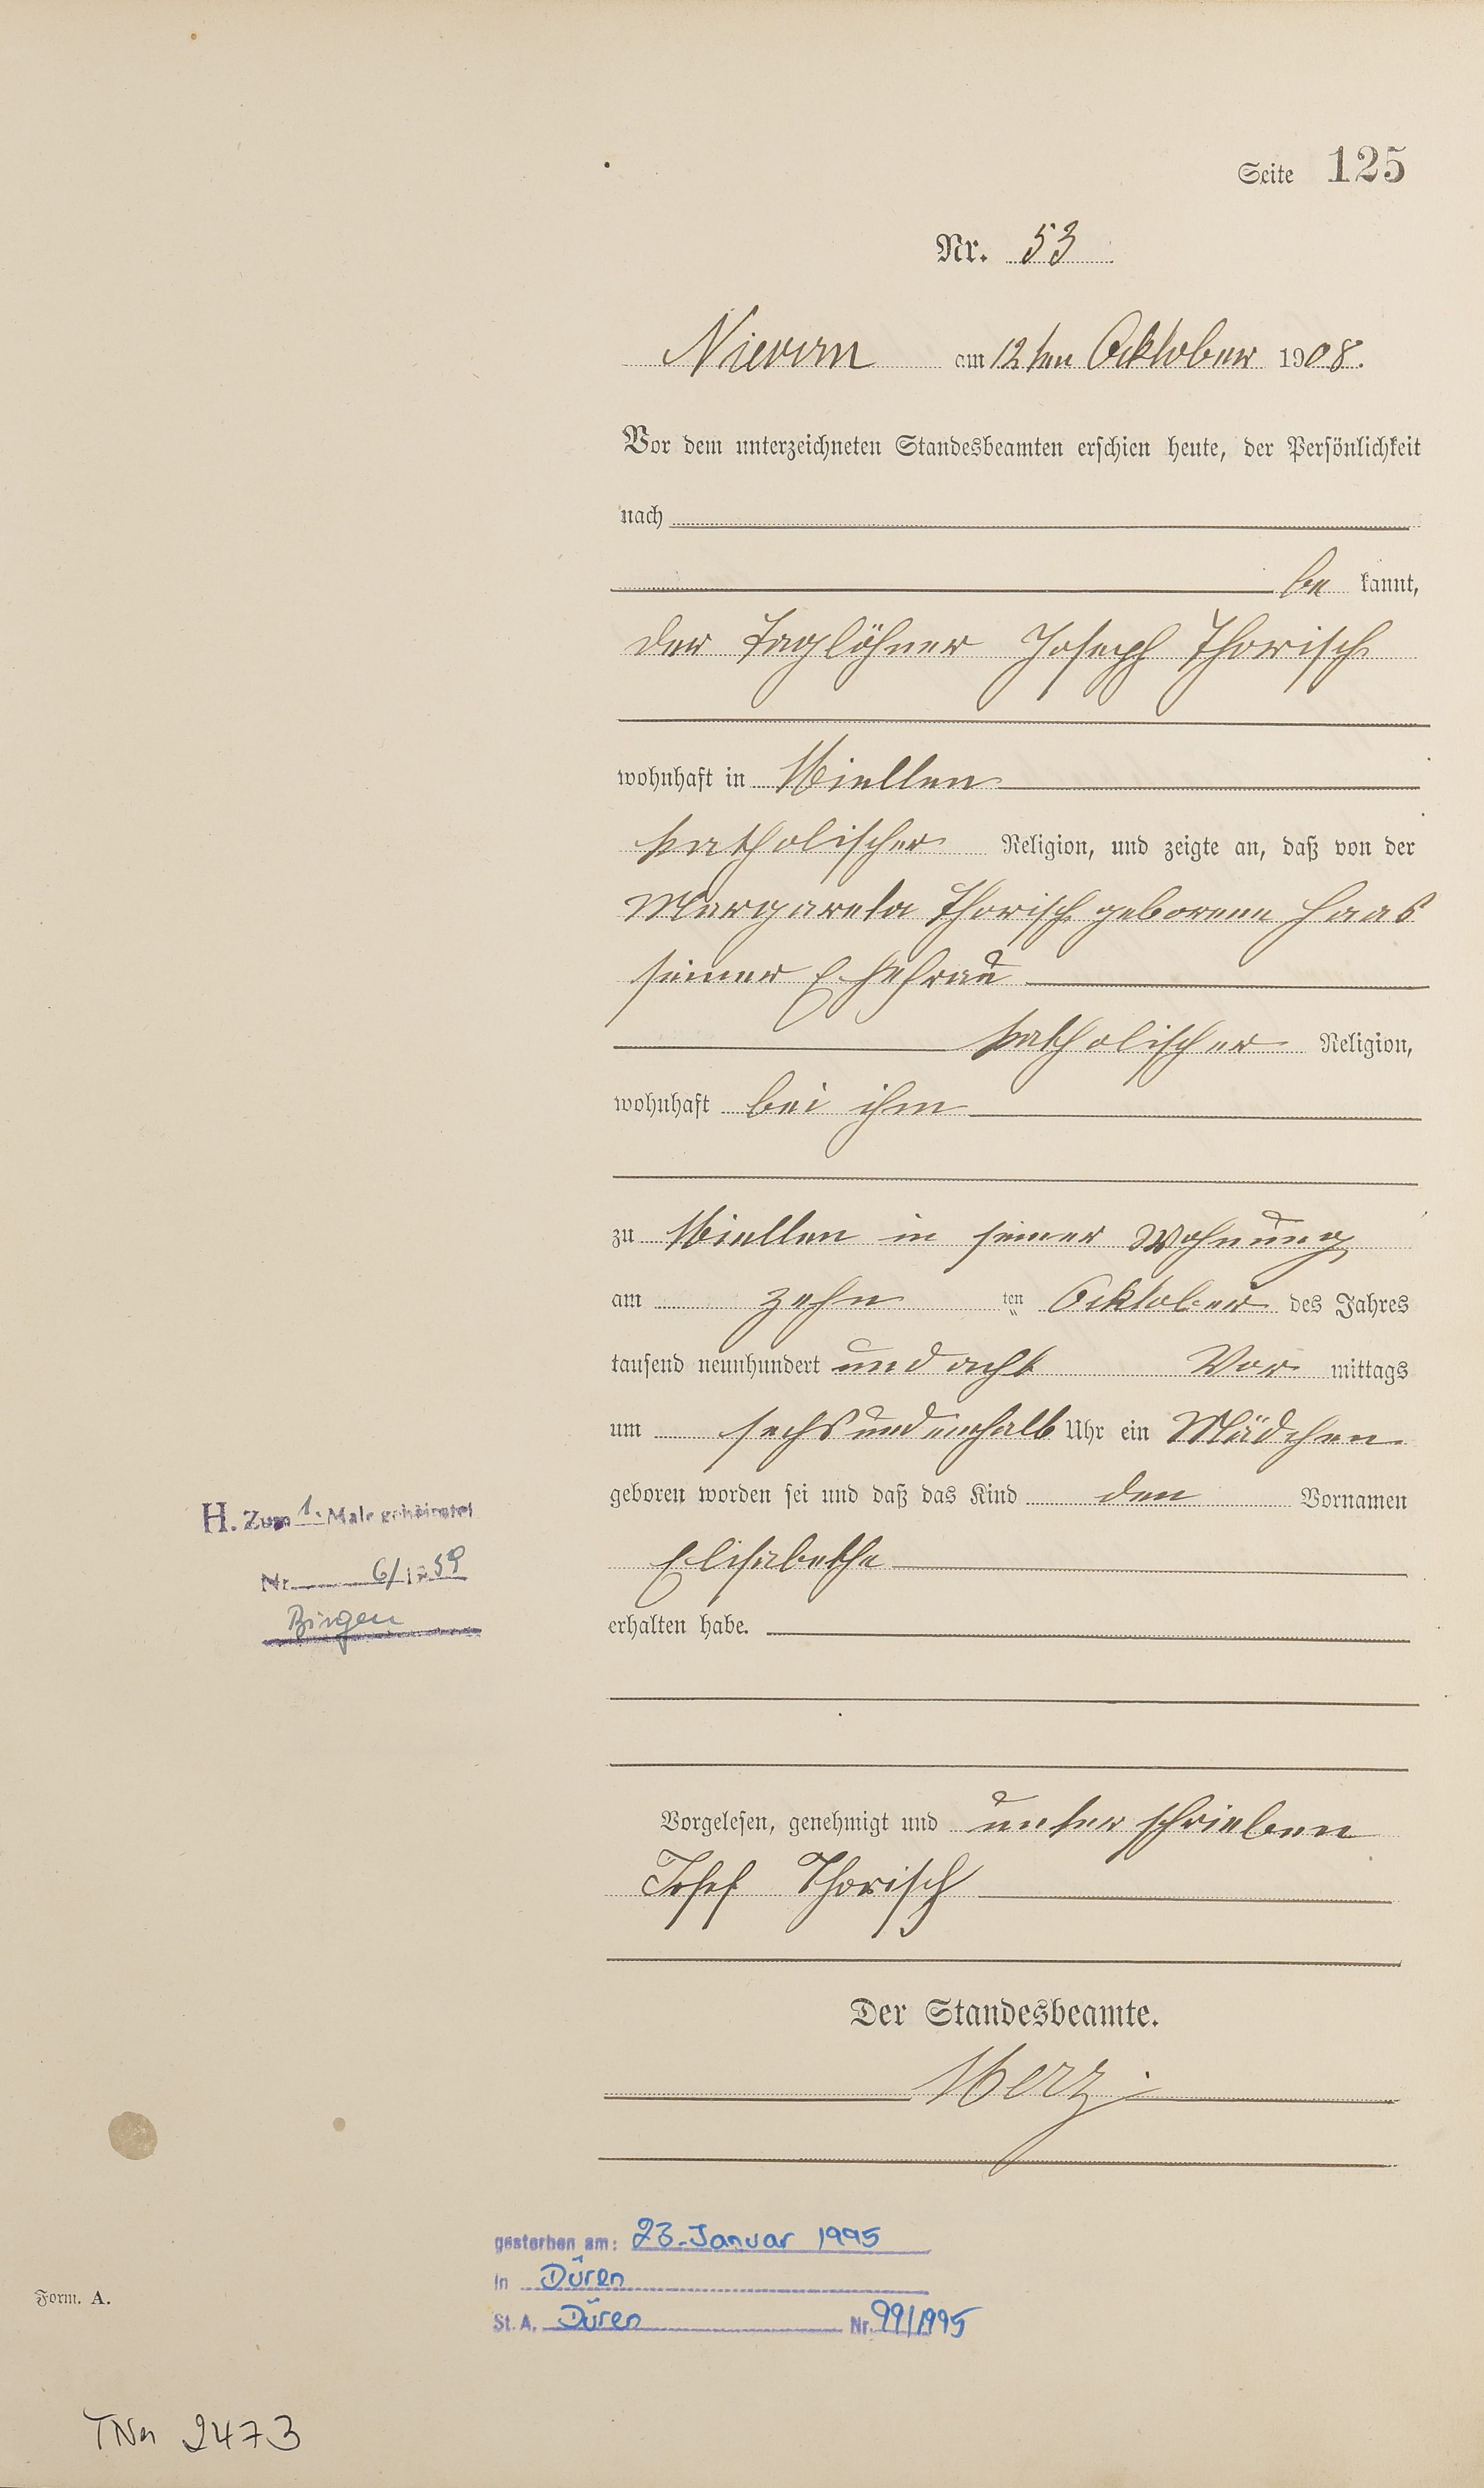 Seite 125
Nr. 53
Nievern am 12ten Ocktober 1908.
Vor dem unterzeichneten Standesbeamten erschien heute, der Persönlichkeit
nach
be kannt,
der Taglöhner Joseph Thorisch
wohnhaft in Miellen
katholischer Religion, und zeigte an, daß von der
Margareta Thorisch geborene Haas
seiner Ehefrau
katholischer Religion,
wohnhaft bei ihm
zu Miellen in seiner Wohnung
am zehn ten Ocktober des Jahres
tausend neunhundert und acht Vor mittags
um sechs und einhalb Uhr ein Mädchen
geboren worden sei und daß das Kind den Vornamen
Elisabetha
erhalten habe.
H. Zum 1. Male geheiratet
Nr. 6/1959
Bingen
Vorgelesen, genehmigt und unterschrieben
Josef Thorisch
Der Standesbeamte.
Merz
gestorben am: 23. Januar 1995
in Düren
St. A. Düren Nr. 99/1995
Form. A.
TNr 2473